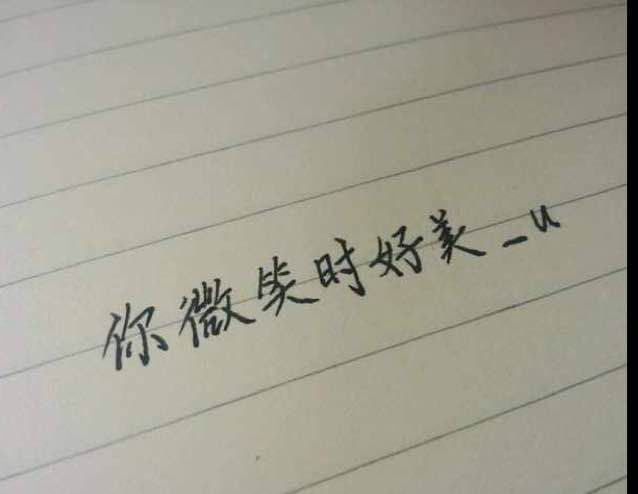 你微笑时好美_u